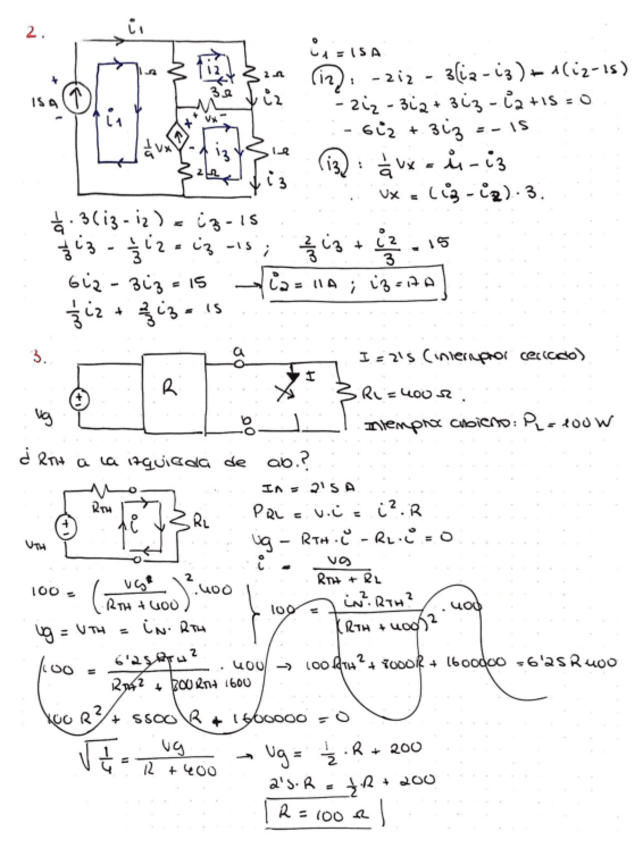 2.
i1
1Ω
i2
2Ω
3Ω
i2
15A
i1
+ vx -
1/9 vx
i3
1Ω
2Ω
i3
i1 = 15A
(i2): - 2i2 - 3(i2 - i3) - 1(i2 - 15)
- 2i2 - 3i2 + 3i3 - i2 + 15 = 0
- 6i2 + 3i3 = - 15
(i3): 1/9 vx = i1 - i3
vx = (i3 - i2) · 3.
1/9 · 3(i3 - i2) = i3 - 15
1/3 i3 - 1/3 i2 = i3 - 15 ; 2/3 i3 + i2/3 = 15
6i2 - 3i3 = 15 → i2 = 11A ; i3 = 17A
1/3 i2 + 2/3 i3 = 15
3.
a
R
I
Vg
b
I = 2'5 (interruptor cerrado)
RL = 400 Ω.
Interruptor abierto: PL = 100 W
¿ RTH a la izquierda de ab.?
RTH
i
RL
VTH
IN = 2'5 A
PRL = V·i = i² · R
Vg - RTH · i - RL · i = 0
i = Vg / RTH + RL
100 = (Vg / RTH + 400)² · 400
Vg = VTH = iN · RTH
100 = iN² · RTH² / (RTH + 400)² · 400
100 = 6'25 RTH² / RTH² + 800RTH 1600 · 400 → 100RTH² + 8000R + 1600000 = 6'25 R 400
100 R² + 5500 R + 1600000 = 0
√1/4 = Vg / R + 400 → Vg = 1/2 · R + 200
2'5 · R = 1/2 · R + 200
R = 100 Ω